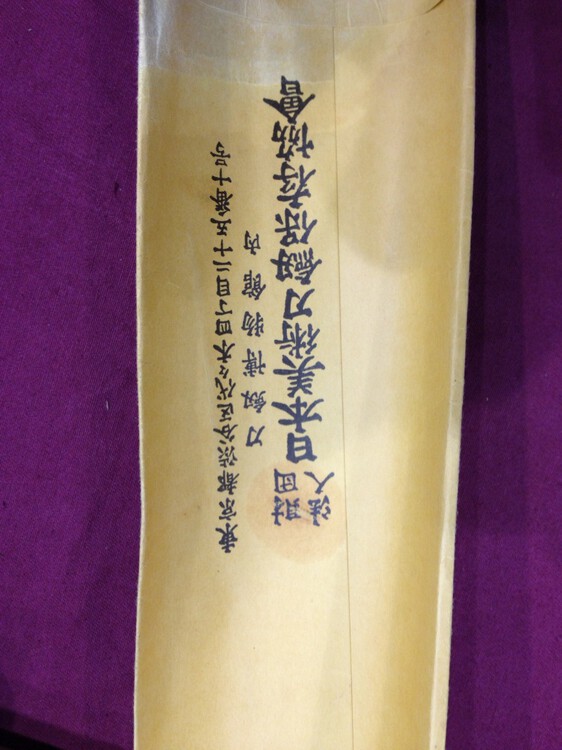 東京都渋谷区代々木四丁目二十五番十号
刀劍博物館内
財団法人 日本美術刀劍保存協會